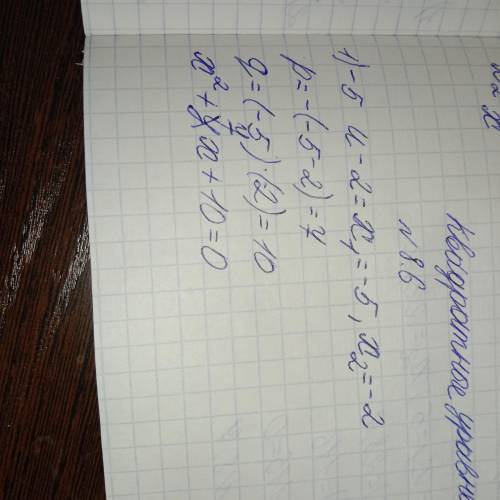 Квадратное уравн
N 8.6
1) -5 и -2 = x₁ = -5, x₂ = -2
p = -(-5-2) = 7
q = (-5)·(-2) = 10
x² + 7x + 10 = 0